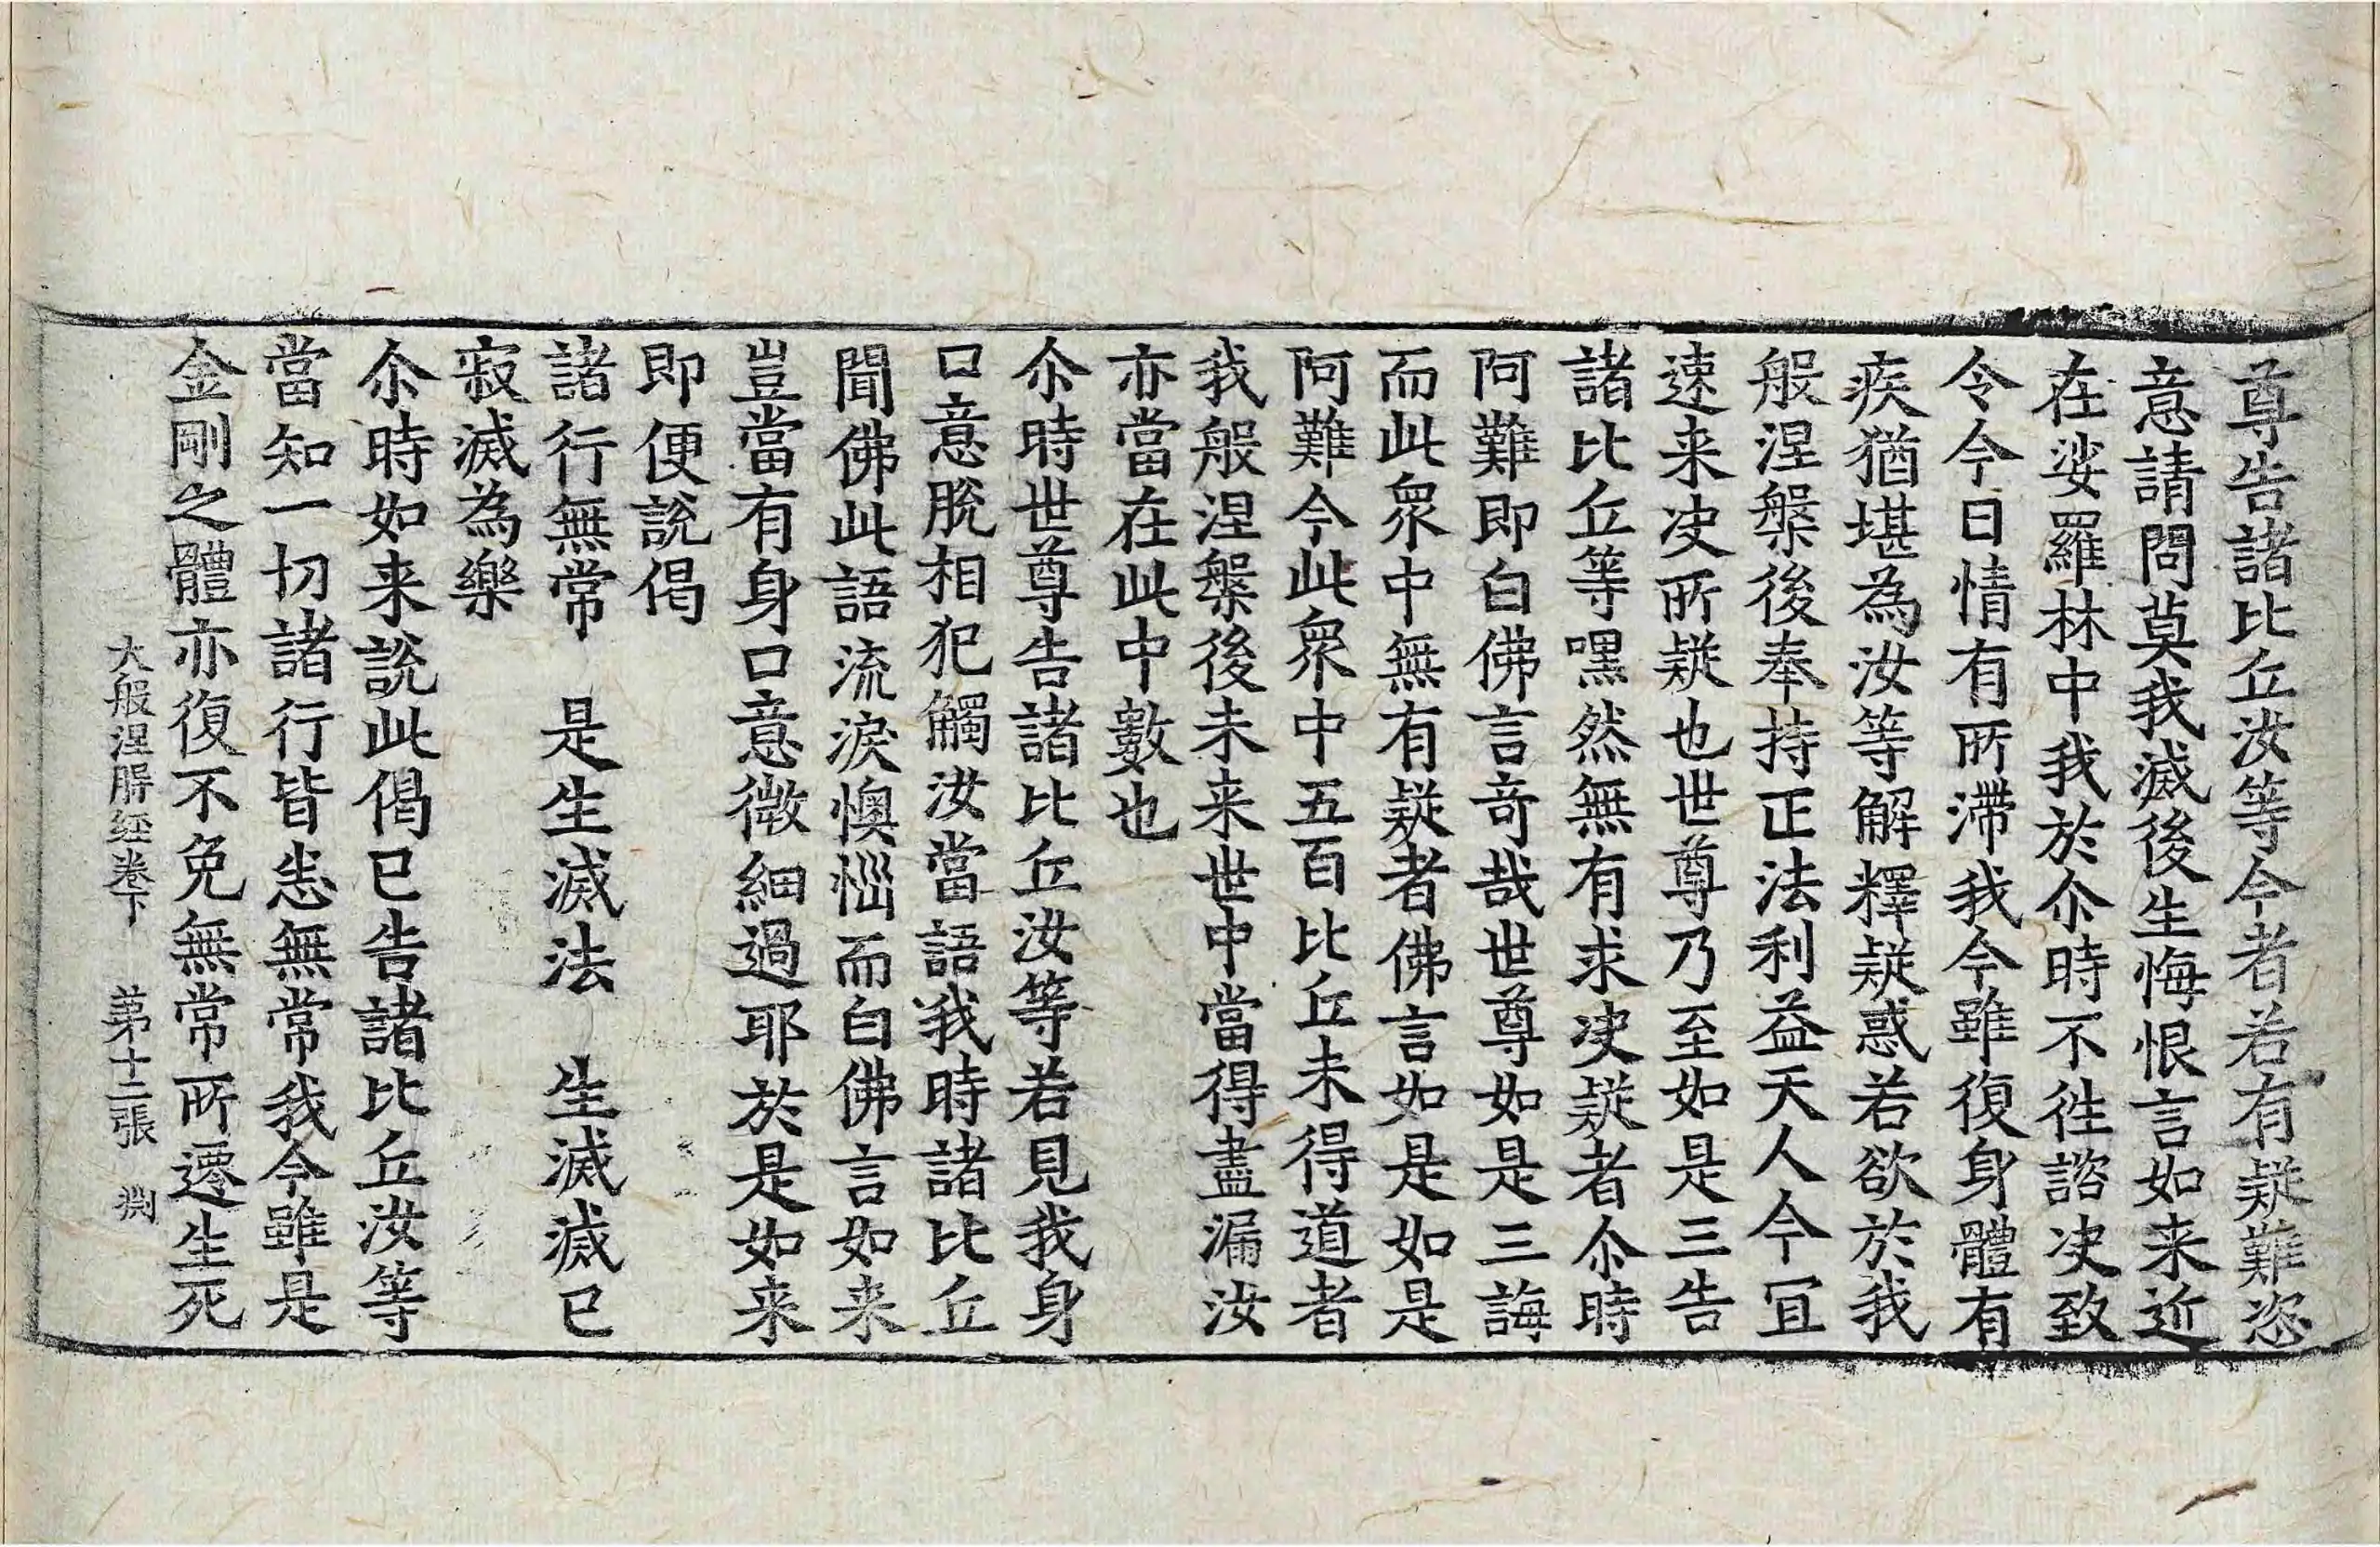 尊告諸比丘汝等今者若有疑難恣
意請問莫我滅後生悔恨言如来近
在娑羅林中我於尒時不往諮决致
令今日情有所滯我今雖復身體有
疾猶堪為汝等解釋疑惑若欲於我
般涅槃後奉持正法利益天人今冝
速来决所疑也世尊乃至如是三告
諸比丘等嘿然無有求决疑者尒時
阿難即白佛言奇哉世尊如是三誨
而此衆中無有疑者佛言如是如是
阿難今此衆中五百比丘未得道者
我般涅槃後未来世中當得盡漏汝
亦當在此中數也
尒時世尊告諸比丘汝等若見我身
口意脫相犯觸汝當語我時諸比丘
聞佛此語流淚懊惱而白佛言如来
豈當有身口意微細過耶於是如来
即便說偈
諸行無常　是生滅法　生滅滅已
寂滅為樂
尒時如来說此偈已告諸比丘汝等
當知一切諸行皆悉無常我今雖是
金剛之體亦復不免無常所遷生死
大般涅槃經卷下　第十二張　渕